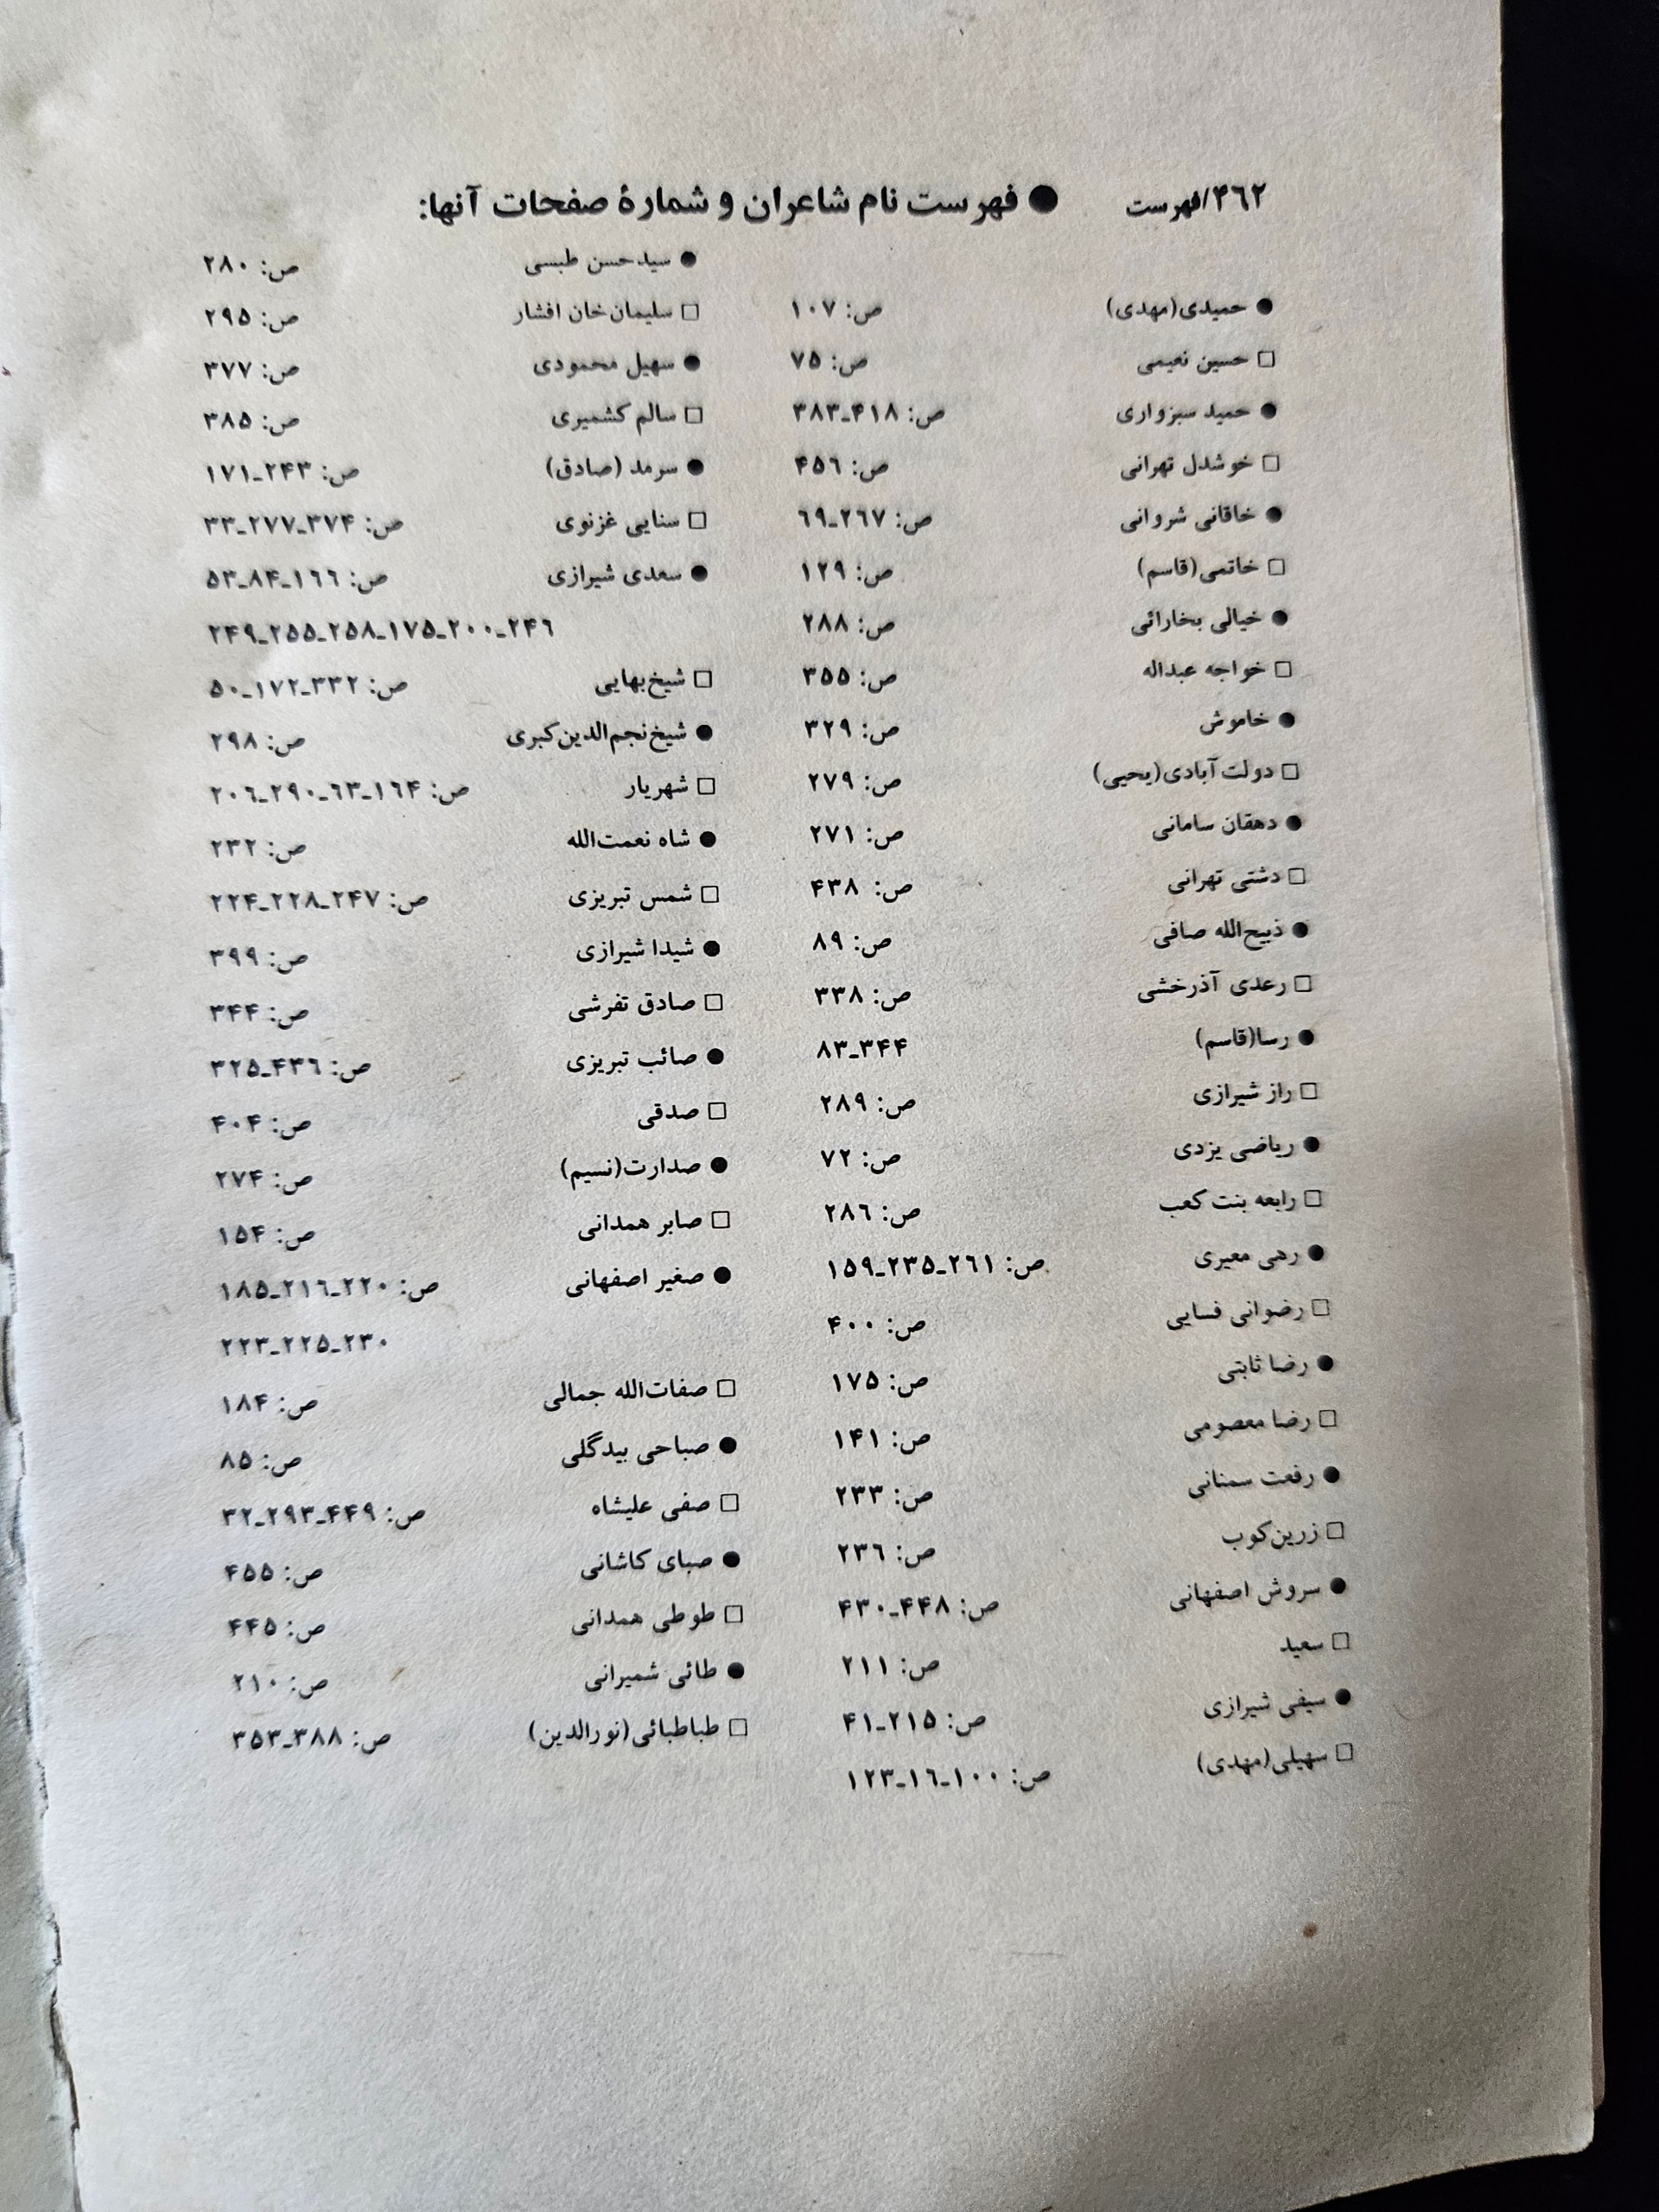 ۴۶۲/فهرست
● فهرست نام شاعران و شمارهٔ صفحات آنها:
● حمیدی(مهدی) ص: ۱۰۷
□ حسین نعیمی ص: ۷۵
● حمید سبزواری ص: ۴۱۸ـ۳۸۳
□ خوشدل تهرانی ص: ۴۵۶
● خاقانی شروانی ص: ۲۶۷ـ۶۹
□ خاتمی(قاسم) ص: ۱۲۹
● خیالی بخارائی ص: ۲۸۸
□ خواجه عبداله ص: ۳۵۵
● خاموش ص: ۳۲۹
□ دولت آبادی(یحیی) ص: ۲۷۹
● دهقان سامانی ص: ۲۷۱
□ دشتی تهرانی ص: ۴۳۸
● ذبیح‌الله صافی ص: ۸۹
□ رعدی آذرخشی ص: ۳۳۸
● رسا(قاسم) ۳۴۴ـ۸۳
□ راز شیرازی ص: ۲۸۹
● ریاضی یزدی ص: ۷۲
□ رابعه بنت کعب ص: ۲۸۶
● رهی معیری ص: ۲۶۱ـ۲۳۵ـ۱۵۹
□ رضوانی فسایی ص: ۴۰۰
● رضا ثابتی ص: ۱۷۵
□ رضا معصومی ص: ۱۴۱
● رفعت سمنانی ص: ۲۳۳
□ زرین‌کوب ص: ۲۳۶
● سروش اصفهانی ص: ۴۴۸ـ۴۳۰
□ سعید ص: ۲۱۱
● سیفی شیرازی ص: ۲۱۵ـ۴۱
□ سهیلی(مهدی) ص: ۱۰۰ـ۱۶ـ۱۲۳
● سیدحسن طبسی ص: ۲۸۰
□ سلیمان‌خان افشار ص: ۲۹۵
● سهیل محمودی ص: ۳۷۷
□ سالم کشمیری ص: ۳۸۵
● سرمد (صادق) ص: ۲۴۳ـ۱۷۱
□ سنایی غزنوی ص: ۳۷۴ـ۲۷۷ـ۳۳
● سعدی شیرازی ص: ۱۶۶ـ۸۴ـ۵۳
۲۴۶ـ۲۰۰ـ۱۷۵ـ۲۵۸ـ۲۵۵ـ۲۴۹
□ شیخ‌بهایی ص: ۳۳۲ـ۱۷۲ـ۵۰
● شیخ‌نجم‌الدین‌کبری ص: ۲۹۸
□ شهریار ص: ۱۶۴ـ۶۳ـ۲۹۰ـ۲۰۶
● شاه نعمت‌الله ص: ۲۳۲
□ شمس تبریزی ص: ۲۴۷ـ۲۲۸ـ۲۲۴
● شیدا شیرازی ص: ۳۹۹
□ صادق تفرشی ص: ۳۴۴
● صائب تبریزی ص: ۴۳۶ـ۳۲۵
□ صدقی ص: ۴۰۴
● صدارت(نسیم) ص: ۲۷۴
□ صابر همدانی ص: ۱۵۴
● صغیر اصفهانی ص: ۲۲۰ـ۲۱۶ـ۱۸۵
۲۳۰ـ۲۲۵ـ۲۲۳
□ صفات‌الله جمالی ص: ۱۸۴
● صباحی بیدگلی ص: ۸۵
□ صفی علیشاه ص: ۴۴۹ـ۲۹۳ـ۳۲
● صبای کاشانی ص: ۴۵۵
□ طوطی همدانی ص: ۴۴۵
● طائی شمیرانی ص: ۲۱۰
□ طباطبائی(نورالدین) ص: ۳۸۸ـ۳۵۳